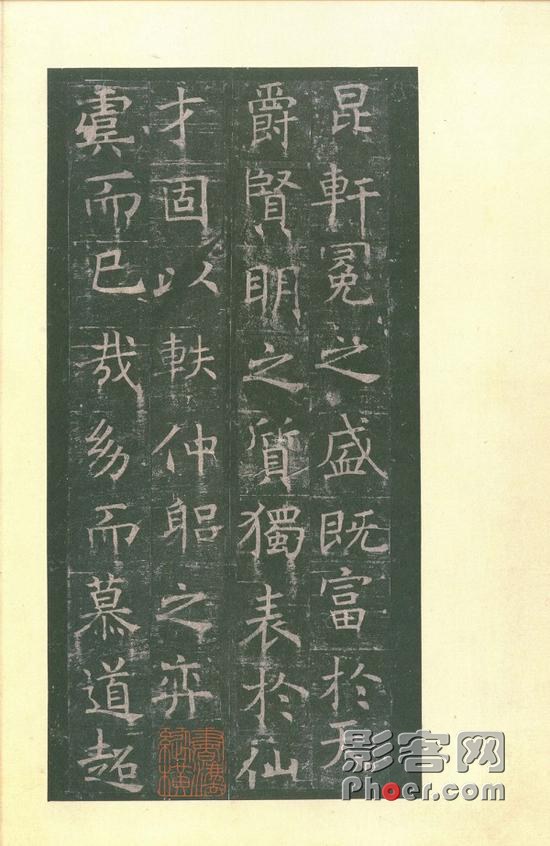 昆軒冕之盛既富於天
爵賢明之質獨表於仙
才固以軼仲躬之弈
虞而已哉幼而慕道超
影客网
Phoer.com